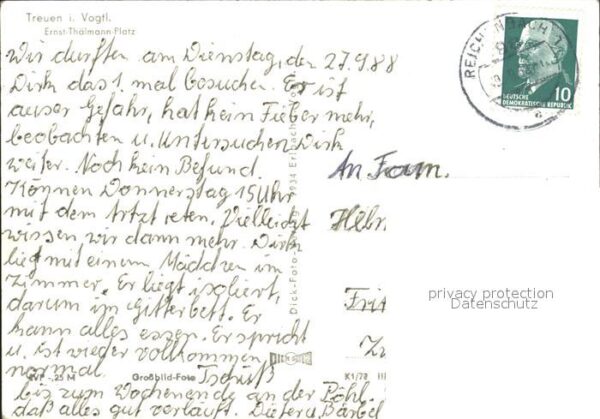 Treuen i. Vogtl.
Ernst-Thälmann-Platz
Wir durften am Dienstag, den 27.9.88
Dirk das 1 mal besuchen. Er ist
auser Gefahr, hat kein Fieber mehr,
beobachten u. Untersuchen Dirk
weiter. Noch kein Befund.
Können Donnerstag 15 Uhr
mit dem Artzt reten. Vielleicht
wissen wir dann mehr. Dirk
lieg mit einem Mädchen im
Zimmer. Er liegt isoliert,
darum im Gitterbett. Er
kann alles essen. Er spricht
u. ist wieder vollkommen
normal. Tschüß
bis zum Wochenende an der Pöhl.
daß alles gut verläuft. Dieter u. Bärbel
EVP -,25 M Großbild-Foto K1/78
Dick-Foto 9934 Erlbach
DICK FOTO
REICHENBACH
DEUTSCHE
DEMOKRATISCHE REPUBLIK
10
An Fam.
privacy protection
Datenschutz